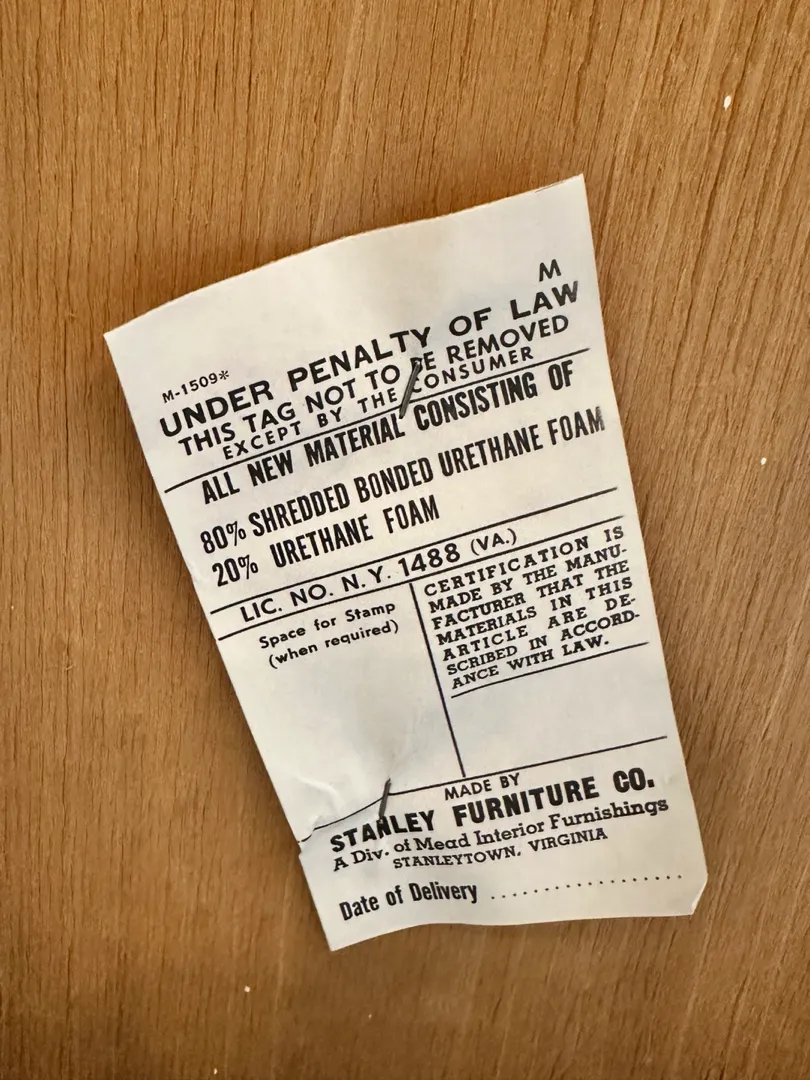 M
M-1509*
UNDER PENALTY OF LAW
THIS TAG NOT TO BE REMOVED
EXCEPT BY THE CONSUMER
ALL NEW MATERIAL CONSISTING OF
80% SHREDDED BONDED URETHANE FOAM
20% URETHANE FOAM
LIC. NO. N.Y. 1488 (VA.)
Space for Stamp
(when required)
CERTIFICATION IS
MADE BY THE MANU-
FACTURER THAT THE
MATERIALS IN THIS
ARTICLE ARE DE-
SCRIBED IN ACCORD-
ANCE WITH LAW.
MADE BY
STANLEY FURNITURE CO.
A Div. of Mead Interior Furnishings
STANLEYTOWN, VIRGINIA
Date of Delivery ...................